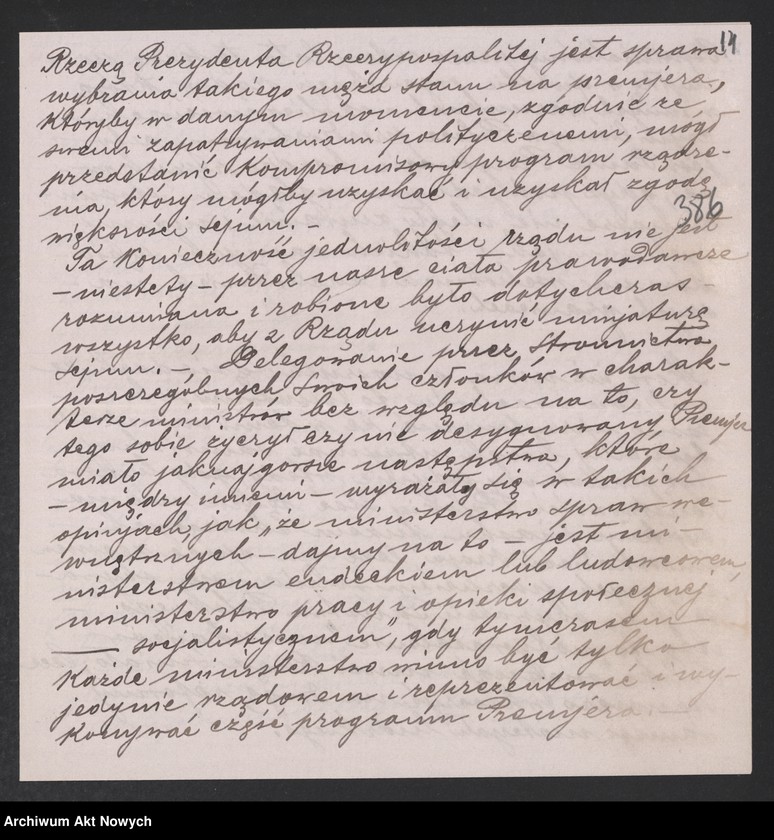 14
Rzeczą Prezydenta Rzeczypospolitej jest sprawa
wybrania takiego męża stanu na premjera,
któryby w danym momencie, zgodnie ze
swemi zapatrywaniami politycznemi, mógł
przedstawić kompromisowy program rządze-
nia, który mógłby uzyskać i uzyskał zgodę
większości sejmu. —
386
Ta konieczność jednolitości rządu nie jest
— niestety — przez nasze ciała prawodawcze
rozumiana i robione było dotychczas —
wszystko, aby z Rządu uczynić minjaturę
sejmu. — Delegowanie przez stronnictwa
poszczególnych swoich członków w charak-
terze ministrów bez względu na to, czy
tego sobie życzył czy nie desygnowany Premjer
miało jaknajgorsze następstwa, które
— między innemi — wyrażały się w takich
opinjach, jak „że ministerstwo spraw we-
wnętrznych — dajmy na to — jest mi-
nisterstwem endeckiem lub ludowcowem,
ministerstwo pracy i opieki społecznej
— socjalistycznem", gdy tymczasem
każde ministerstwo winno być tylko
jedynie rządowem i reprezentować i wy-
konywać część programu Premjera. —
Archiwum Akt Nowych